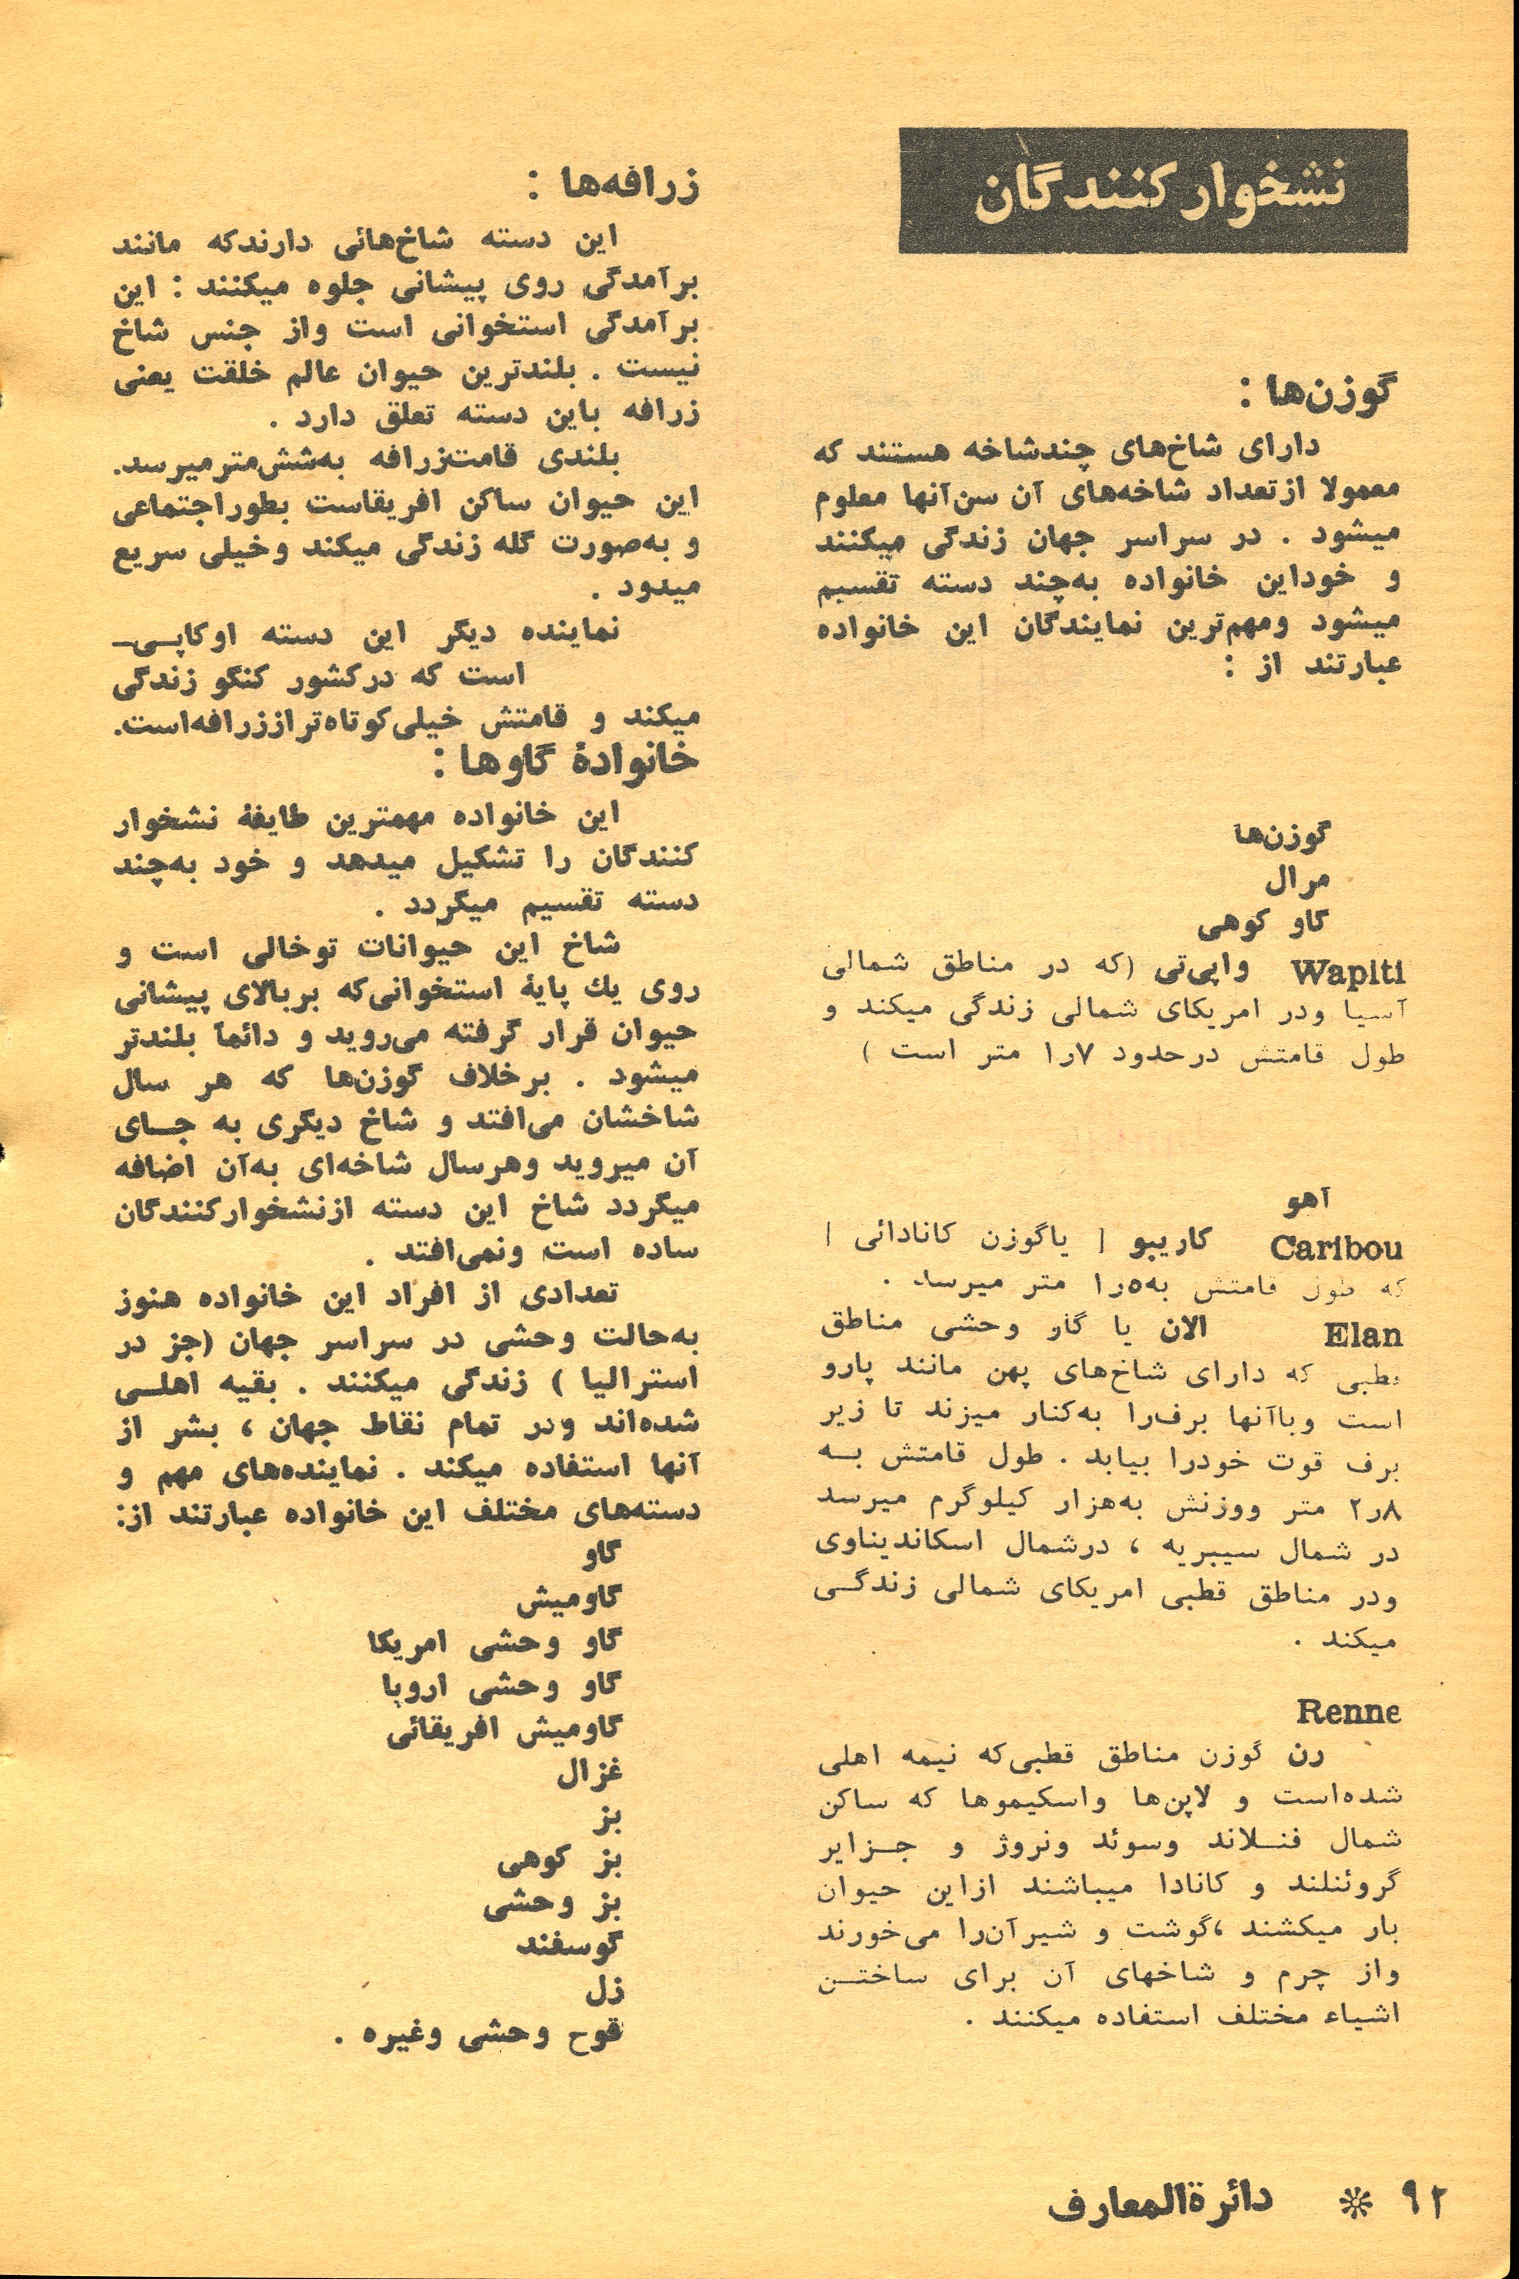 نشخوارکنندگان
گوزن‌ها :
دارای شاخ‌های چندشاخه هستند که
معمولا ازتعداد شاخه‌های آن سن‌آنها معلوم
میشود . در سراسر جهان زندگی میکنند
و خوداین خانواده به‌چند دسته تقسیم
میشود ومهم‌ترین نمایندگان این خانواده
عبارتند از :
گوزن‌ها
مرال
گاو کوهی
Wapiti واپی‌تی (که در مناطق شمالی
آسیا ودر امریکای شمالی زندگی میکند و
طول قامتش درحدود ۱ر۷ متر است )
آهو
Caribou کاریبو [ یاگوزن کانادائی ]
که طول قامتش به۱ر۵ متر میرسد .
Elan الان یا گاو وحشی مناطق
قطبی که دارای شاخ‌های پهن مانند پارو
است وباآنها برف‌را به‌کنار میزند تا زیر
برف قوت خودرا بیابد . طول قامتش به
۲ر۸ متر ووزنش به‌هزار کیلوگرم میرسد
در شمال سیبریه ، درشمال اسکاندیناوی
ودر مناطق قطبی امریکای شمالی زندگی
میکند .
Renne
رن گوزن مناطق قطبی‌که نیمه اهلی
شده‌است و لاپن‌ها واسکیموها که ساکن
شمال فنلاند وسوئد ونروژ و جزایر
گروئنلند و کانادا میباشند ازاین حیوان
بار میکشند ،گوشت و شیرآن‌را می‌خورند
واز چرم و شاخهای آن برای ساختن
اشیاء مختلف استفاده میکنند .
زرافه‌ها :
این دسته شاخ‌هائی دارندکه مانند
برآمدگی روی پیشانی جلوه میکنند : این
برآمدگی استخوانی است واز جنس شاخ
نیست . بلندترین حیوان عالم خلقت یعنی
زرافه باین دسته تعلق دارد .
بلندی قامت‌زرافه به‌شش‌مترمیرسد.
این حیوان ساکن افریقاست بطوراجتماعی
و به‌صورت گله زندگی میکند وخیلی سریع
میدود .
نماینده دیگر این دسته اوکاپی-
است که درکشور کنگو زندگی
میکند و قامتش خیلی‌کوتاه‌تراززرافه‌است.
خانوادهٔ گاوها :
این خانواده مهمترین طایفهٔ نشخوار
کنندگان را تشکیل میدهد و خود به‌چند
دسته تقسیم میگردد .
شاخ این حیوانات توخالی است و
روی یك پایهٔ استخوانی‌که بربالای پیشانی
حیوان قرار گرفته می‌روید و دائماً بلندتر
میشود . برخلاف گوزن‌ها که هر سال
شاخشان می‌افتد و شاخ دیگری به جای
آن میروید وهرسال شاخه‌ای به‌آن اضافه
میگردد شاخ این دسته ازنشخوارکنندگان
ساده است ونمی‌افتد .
تعدادی از افراد این خانواده هنوز
به‌حالت وحشی در سراسر جهان (جز در
استرالیا ) زندگی میکنند . بقیه اهلی
شده‌اند ودر تمام نقاط جهان ، بشر از
آنها استفاده میکند . نماینده‌های مهم و
دسته‌های مختلف این خانواده عبارتند از:
گاو
گاومیش
گاو وحشی امریکا
گاو وحشی اروپا
گاومیش افریقائی
غزال
بز
بز کوهی
بز وحشی
گوسفند
زل
قوح وحشی وغیره .
۹۲ * دائرةالمعارف